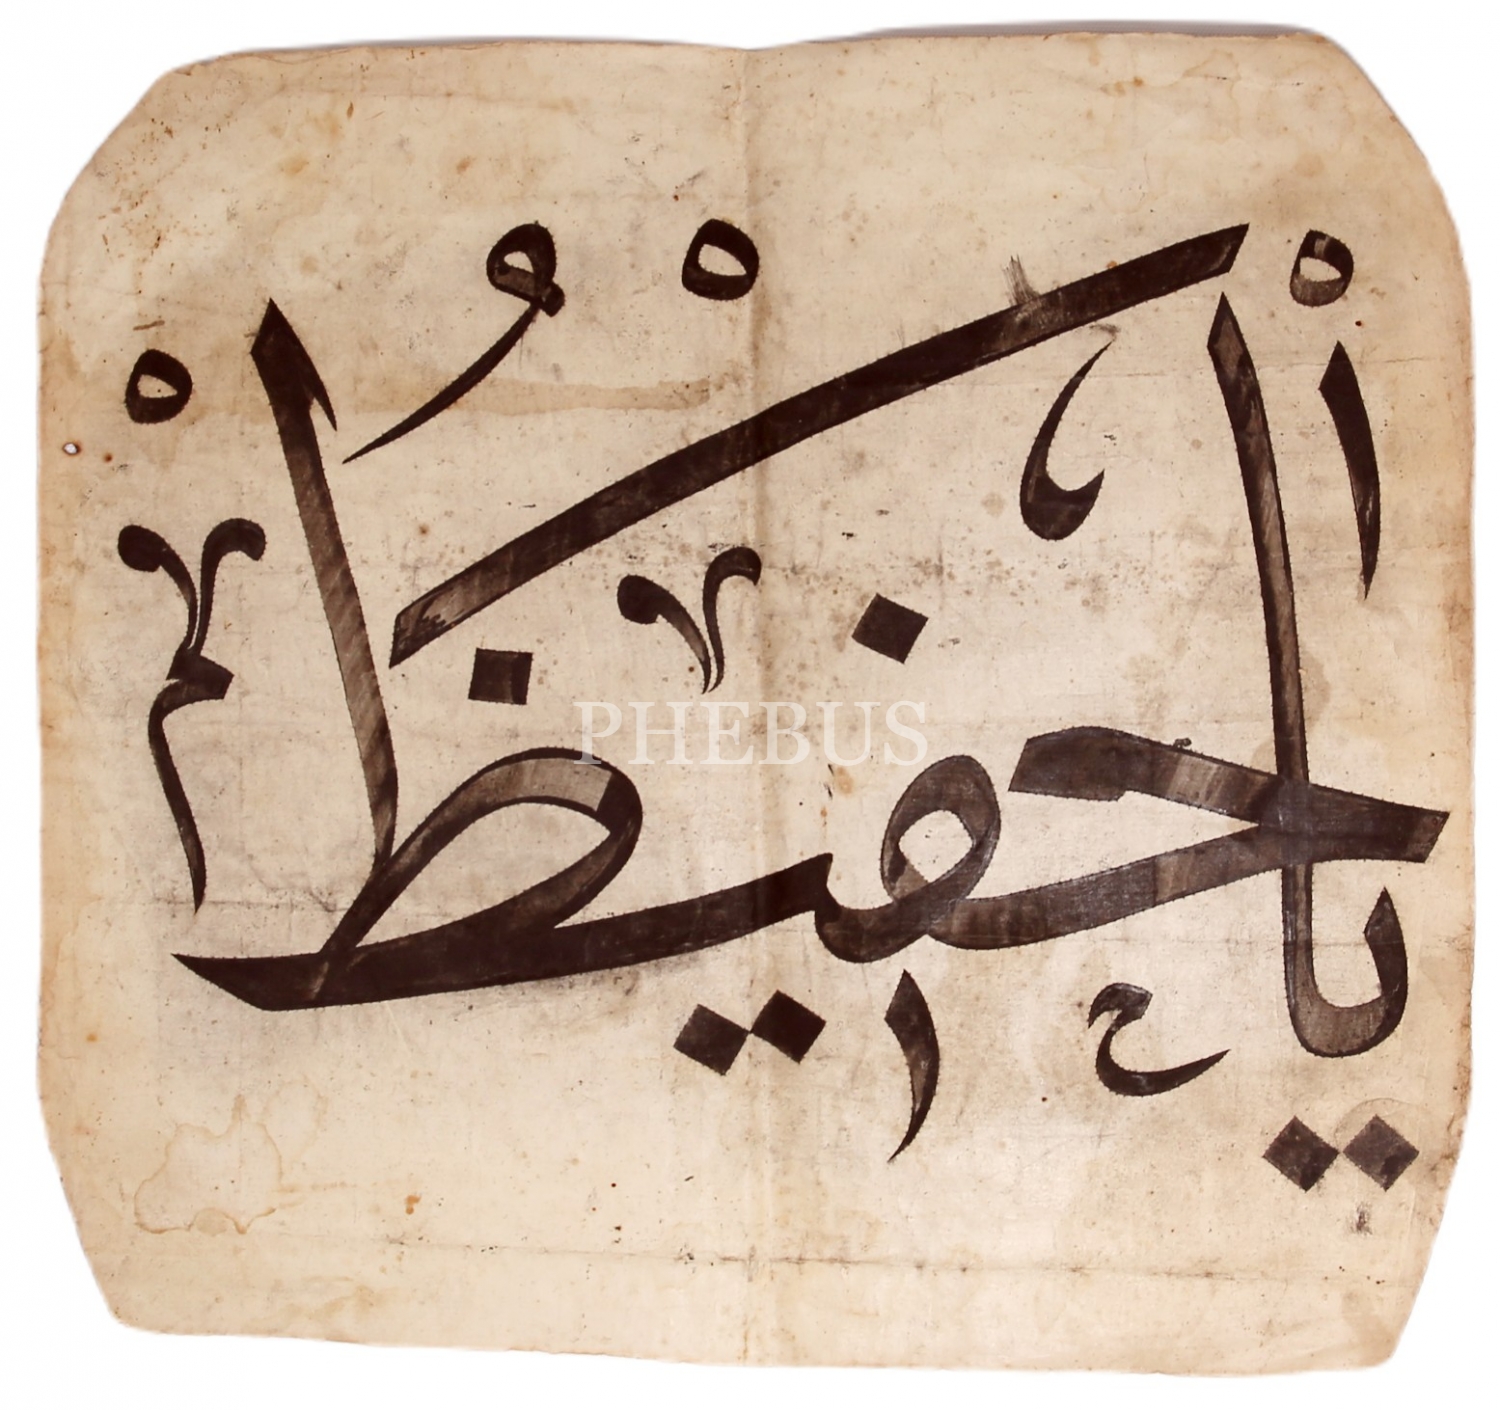 يا حفيظُ
PHEBUS